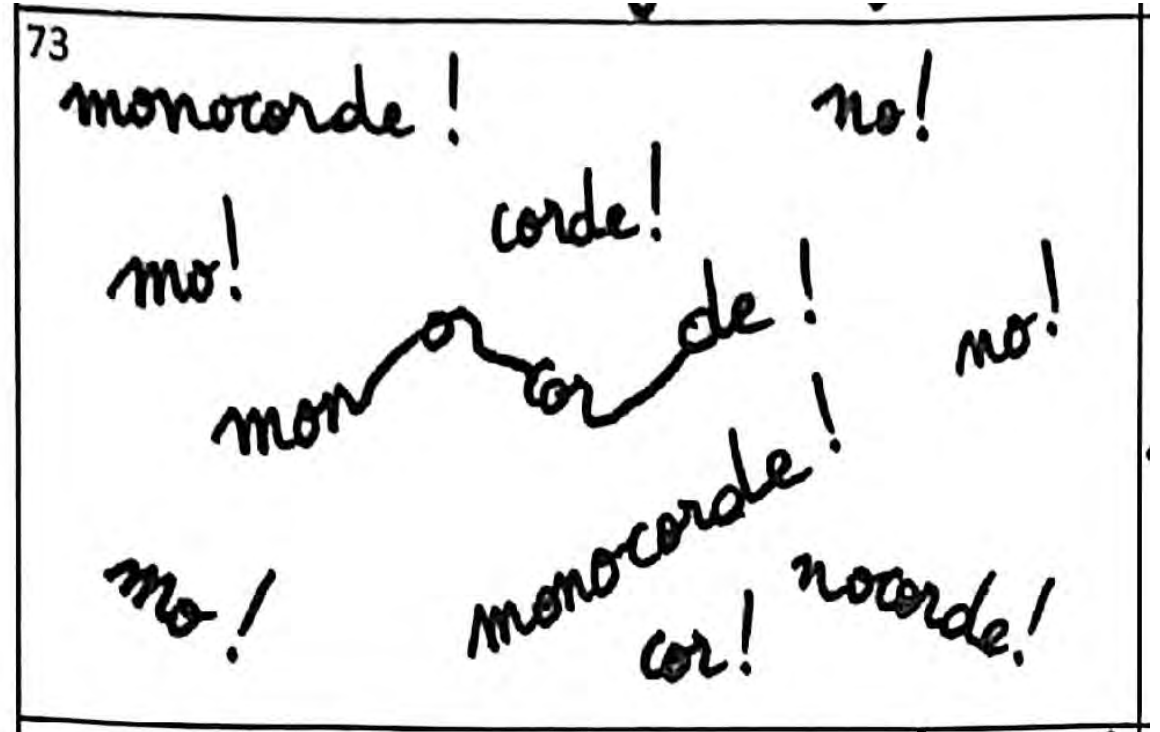 73
monocorde !
no!
corde!
mo!
monocorde !
no!
monocorde !
mo !
nocorde!
cor!